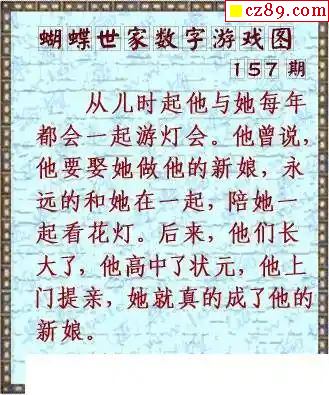 cz89.com
蝴蝶世家数字游戏图
157期
从儿时起他与她每年
都会一起游灯会。他曾说，
他要娶她做他的新娘，永
远的和她在一起，陪她一
起看花灯。后来，他们长
大了，他高中了状元，他上
门提亲，她就真的成了他的
新娘。